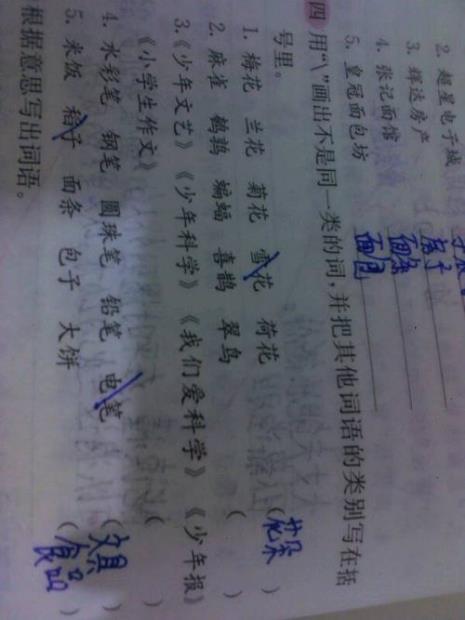 2. 超星电子城
3. 辉达房产
4. 张记面馆 面条
5. 皇冠面包坊 面包
四 用“\”画出不是同一类的词,并把其他词语的类别写在括
号里。
1. 梅花 兰花 菊花 雪花 荷花 (花朵)
2. 麻雀 鹌鹑 蝙蝠 喜鹊 翠鸟 ( )
3.《少年文艺》《少年科学》《我们爱科学》《少年报》
《小学生作文》 ( )
4. 水彩笔 钢笔 圆珠笔 铅笔 电笔 (文具)
5. 米饭 稻子 面条 包子 大饼 (食品)
根据意思写出词语。